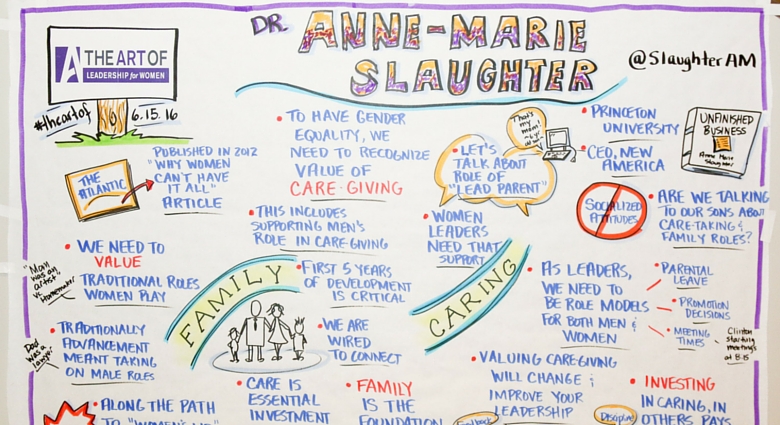 DR. ANNE-MARIE
SLAUGHTER
@SlaughterAM
A THE ART OF
LEADERSHIP for WOMEN
#theartof
6.15.16
THE
ATLANTIC
PUBLISHED IN 2012
"WHY WOMEN
CAN'T HAVE
IT ALL"
ARTICLE
• TO HAVE GENDER
EQUALITY, WE
NEED TO RECOGNIZE
VALUE OF
CARE-GIVING
• THIS INCLUDES
SUPPORTING MEN'S
ROLE IN CARE-GIVING
• LET'S
TALK ABOUT
ROLE OF
"LEAD PARENT"
"That's
my mom!"
• WOMEN
LEADERS
NEED THAT
SUPPORT
• PRINCETON
UNIVERSITY
• CEO, NEW
AMERICA
UNFINISHED
BUSINESS
Anne Marie
Slaughter
SOCIALIZED
ATTITUDES
• ARE WE TALKING
TO OUR SONS ABOUT
CARE-TAKING &
FAMILY ROLES?
• WE NEED TO
VALUE
TRADITIONAL ROLES
WOMEN PLAY
"Mom
was an
artist,
vs. Homemaker
FAMILY
• FIRST 5 YEARS
OF DEVELOPMENT
IS CRITICAL
• WE ARE
WIRED
TO CONNECT
CARING
• AS LEADERS,
WE NEED TO
BE ROLE MODELS
FOR BOTH MEN &
WOMEN
• PARENTAL
LEAVE
• PROMOTION
DECISIONS
• MEETING
TIMES
Clinton
starting
meetings
at 8:15
• TRADITIONALLY
ADVANCEMENT
MEANT TAKING
ON MALE ROLES
Dad
was a
lawyer
• ALONG THE PATH
• CARE IS
ESSENTIAL
INVESTMENT
• FAMILY
IS THE
FOUNDATION
• VALUING CAREGIVING
WILL CHANGE &
IMPROVE YOUR
LEADERSHIP
Discipline
• INVESTING
IN CARING, IN
OTHERS PAYS